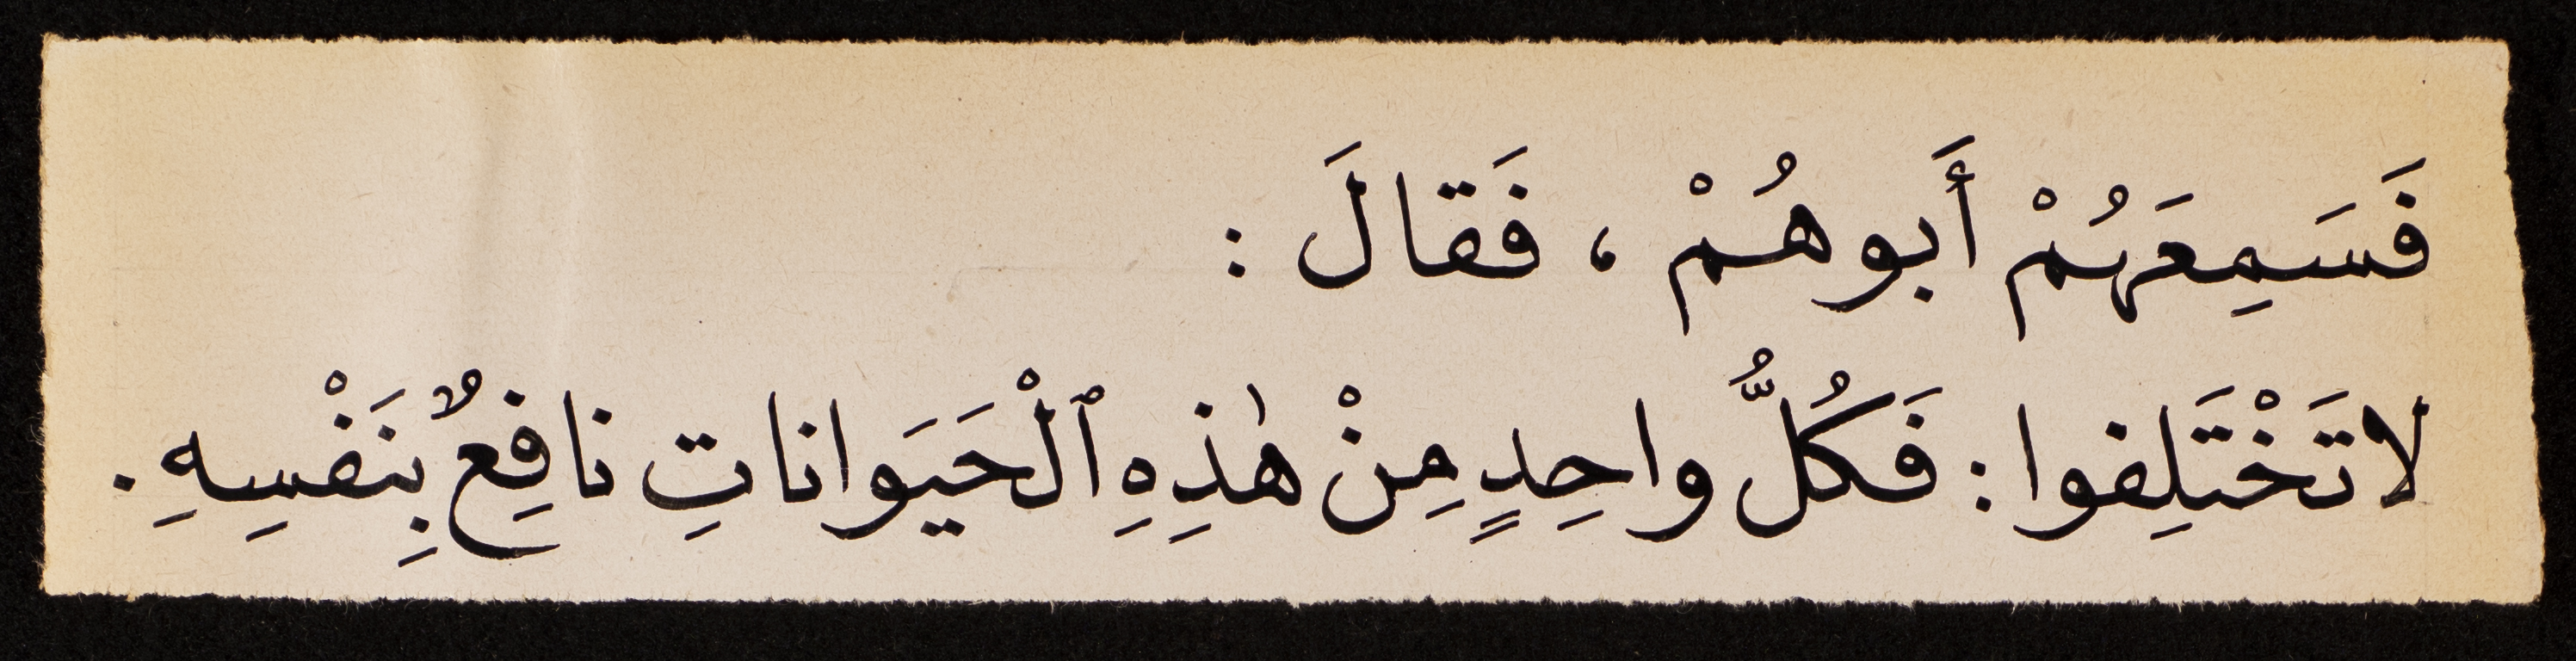 فَسَمِعَهُمْ أَبوهُمْ ، فَقالَ :
لا تَخْتَلِفوا : فَكُلُّ واحِدٍ مِنْ هٰذِهِ ٱلْحَيَوانات&#x650; نافِعٌ بِنَفْسِهِ .